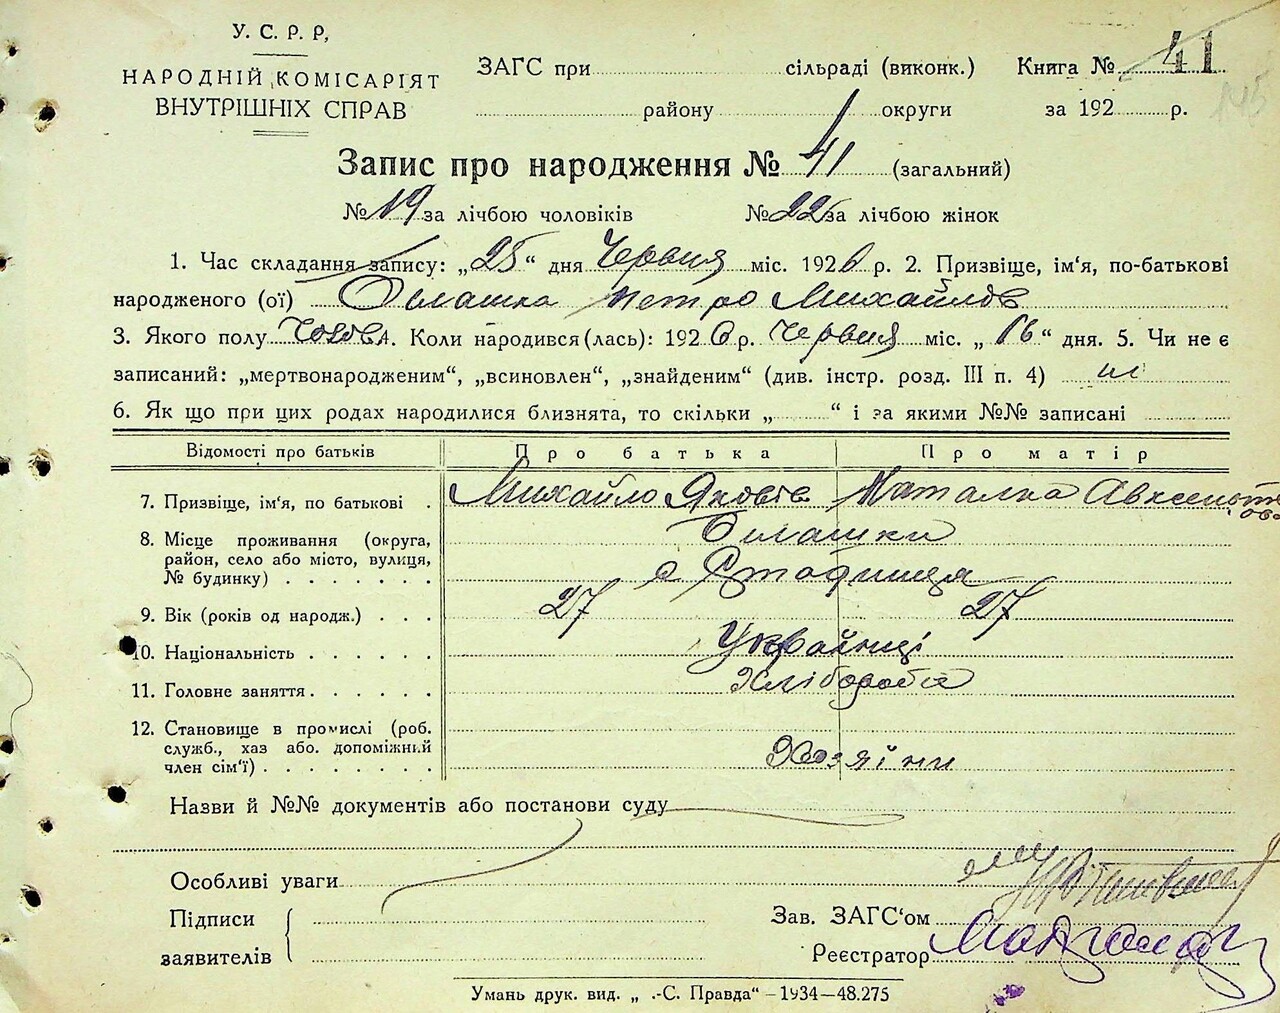 У. С. Р. Р,
НАРОДНІЙ КОМІСАРІЯТ
ВНУТРІШНІХ СПРАВ
ЗАГС при сільраді (виконк.) Книга № 41
району округи за 192 р.
145
Запис про народження № 41 (загальний)
№ 19 за лічбою чоловіків № 22 за лічбою жінок
1. Час складання запису: „25“ дня Червня міс. 1926 р. 2. Призвіще, ім'я, по-батькові
народженого (ої) Білашка Петро Михайлов
3. Якого полу Чолов. 4. Коли народився (лась): 1926 р. Червня міс. „16“ дня. 5. Чи не є
записаний: „мертвонародженим“, „всиновлен“, „знайденим“ (див. інстр. розд. III п. 4) ні
6. Як що при цих родах народилися близнята, то скільки „ “ і за якими №№ записані
Відомості про батьків Про батька Про матір
7. Призвіще, ім'я, по батькові . Михайло Яковів Наталка Авксентьєва
Білашки
8. Місце проживання (округа,
район, село або місто, вулиця,
№ будинку) . . . . . . . с Стадниця
9. Вік (років од народж.) . . . 27 27
10. Національність . . . . . . Українці
11. Головне заняття . . . . . . Хлібороби
12. Становище в промислі (роб.
служб., хаз або. допоміжний
член сім'ї) . . . . . . . . Хозяїни
Назви й №№ документів або постанови суду
Особливі уваги
Підписи
заявителів
Зав. ЗАГС'ом
Реєстратор
Умань друк. вид. „ .-С. Правда“ – 1934—48.275